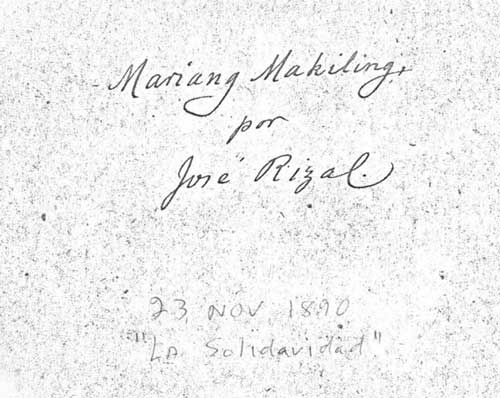 Mariang Makiling,
por
José Rizal.
23 NOV, 1890
"La Solidavidad"